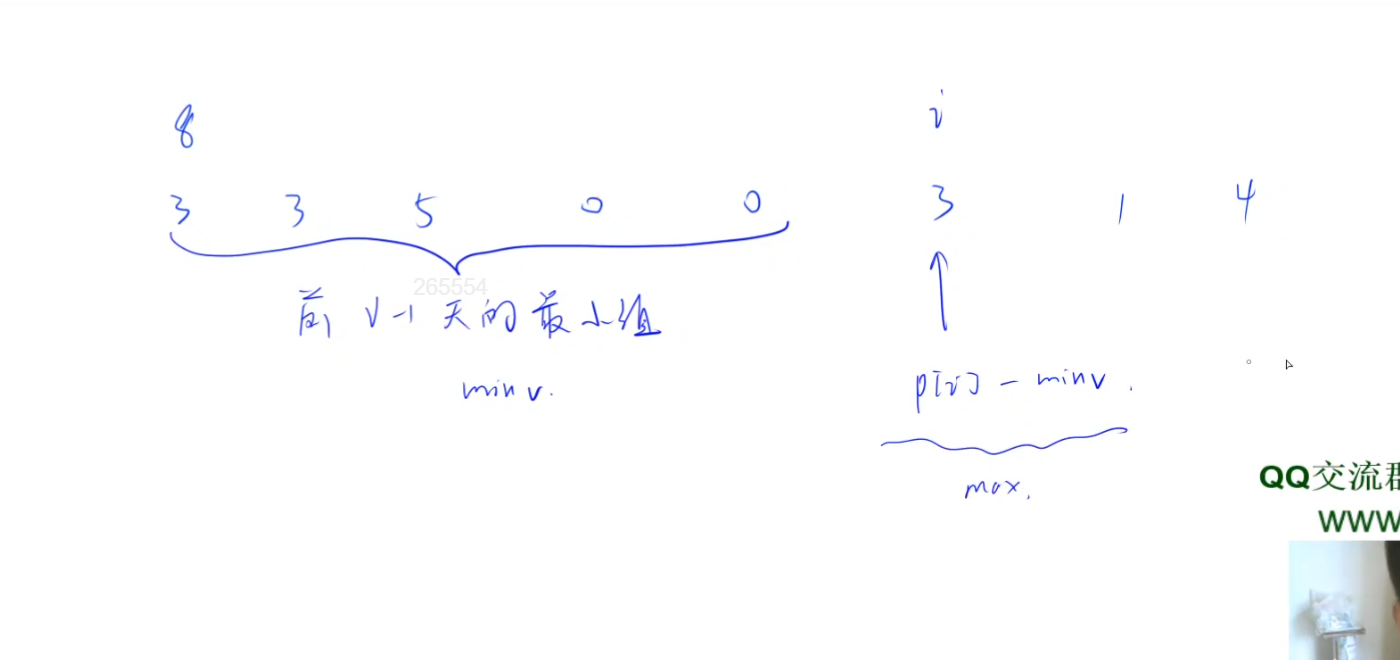 8
i
3 3 5 0 0 3 1 4
265554
前 i-1 天的最小值
minv.
p[i] - minv.
max.
QQ交流群
WWW